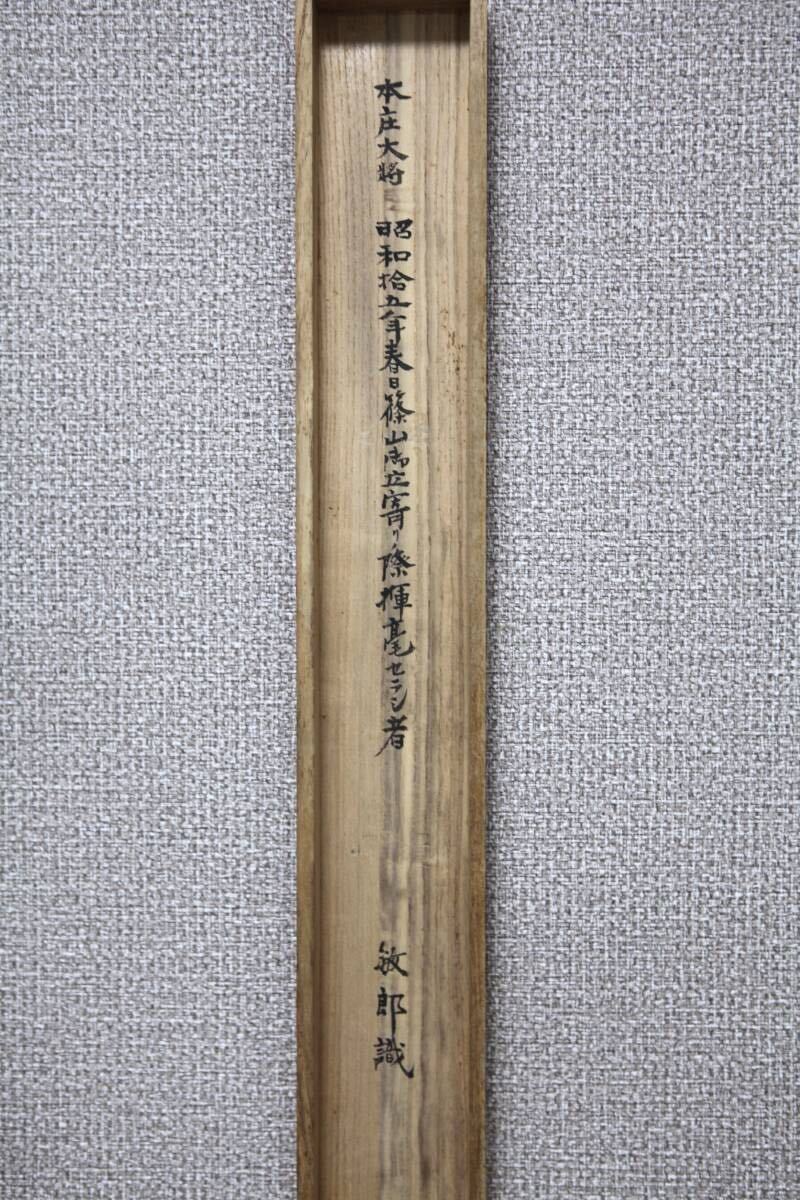 本庄大將 昭和拾五年春日篠山御立寄リノ際揮毫セラレシ者
敏郎識